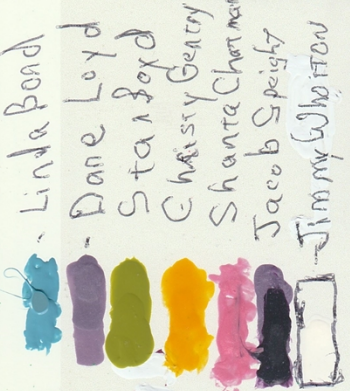 - Linda Bond
- Dane Loyd
Stan Boyd
Christy Gentry
Shanta Chatman
Jacob Speight
Jimmy Whotton